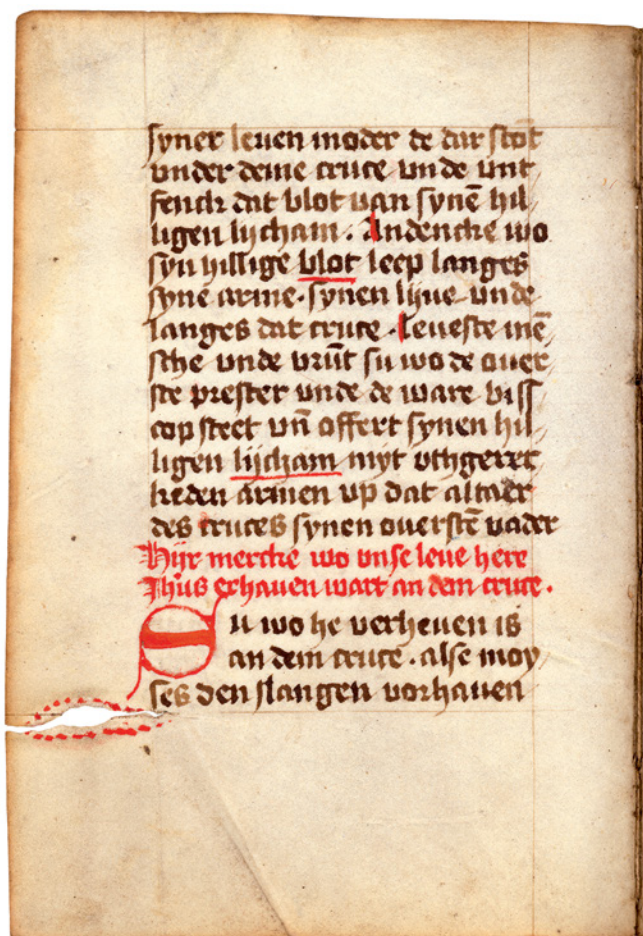 syner leuen moder de dar stot
vnder deme cruce vnde vnt
fench dat blot van synē hil
ligen lijcham. Andencke wo
syn hillige blot leep langes
syne arme. synen lijue vnde
langes dat cruce. Leueste mē
sche vnde vrūt su wo de ouer
ste prester vnde de ware biss
cop steet vn̄ offert synen hil
ligen lijcham myt vthgerec
keden armen vp dat altaer
des cruces synen ouerstē vader
Hijr mercke wo vnse leue here
Jhūs erhauen wart an dem cruce.
Su wo he verheuen is
an dem cruce. alse moy
ses den slangen vorhauen